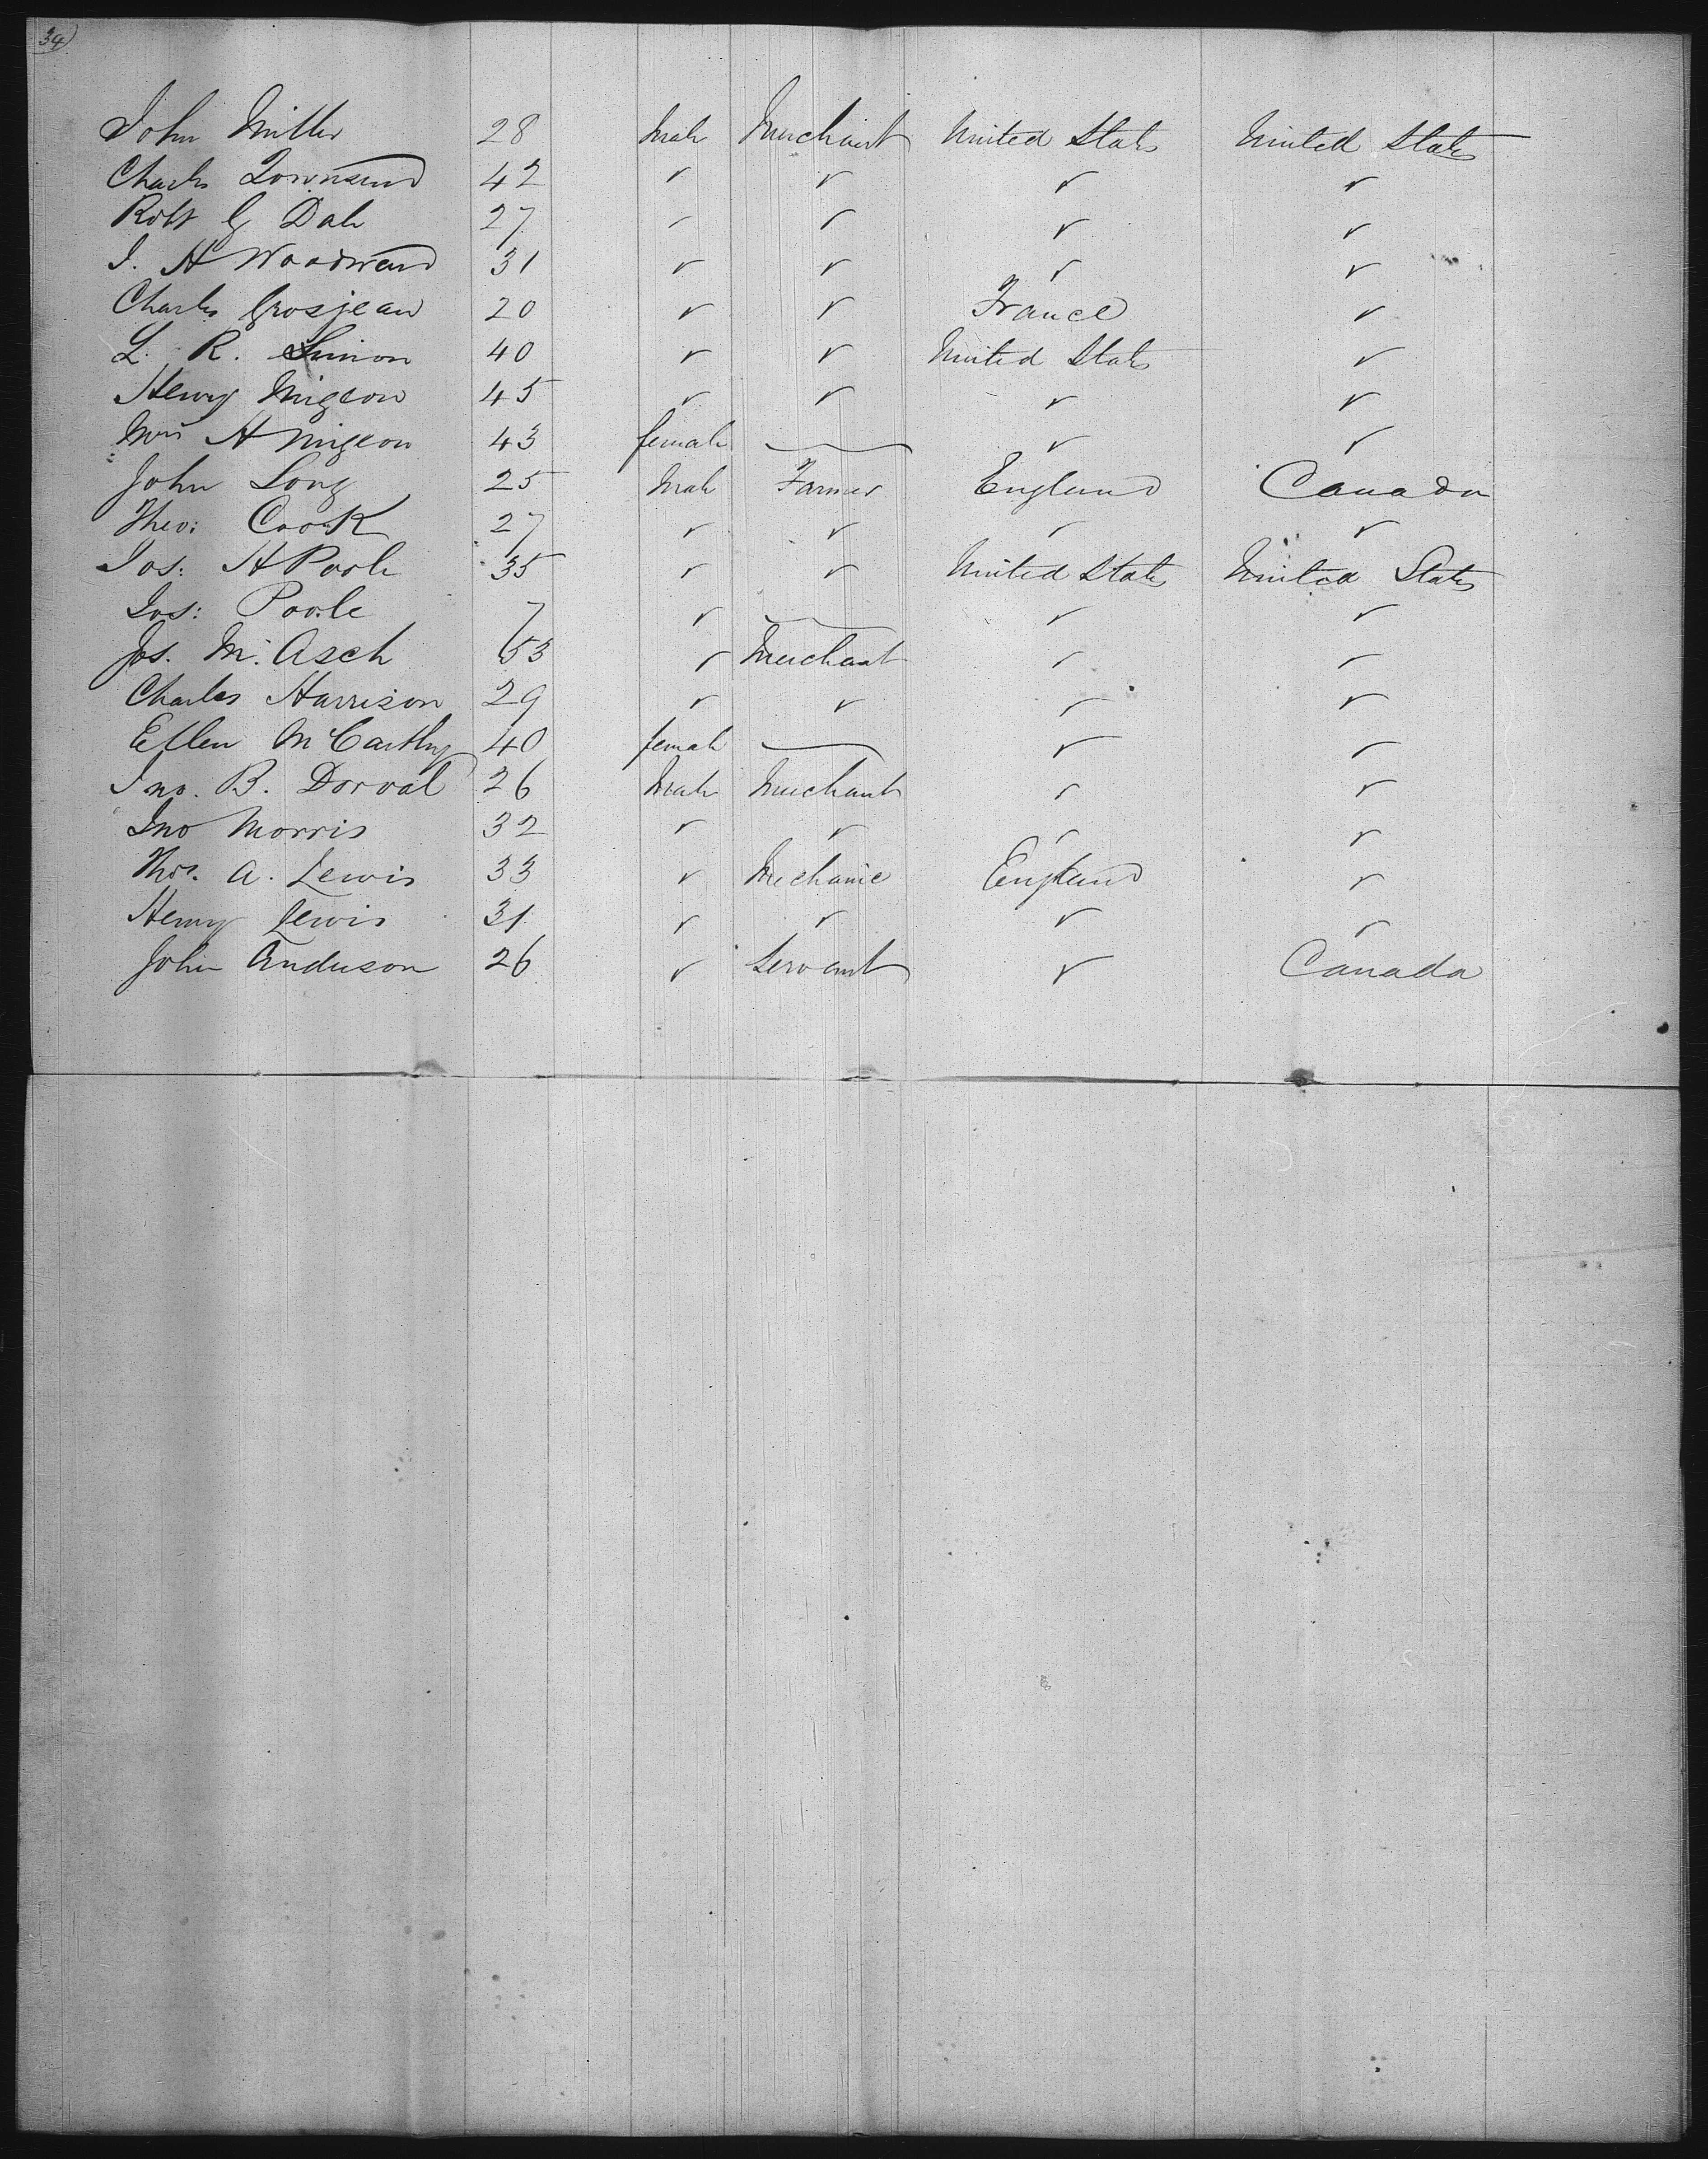 34)
John Miller 28 Male Merchant United States United States
Charles Townsend 42 ✓ ✓ ✓ ✓
Robt G Dale 27 ✓ ✓ ✓ ✓
J. H Woodward 31 ✓ ✓ ✓ ✓
Charles Grosjean 20 ✓ ✓ France ✓
L. R. Simon 40 ✓ ✓ United States ✓
Henry Migeon 45 ✓ ✓ ✓ ✓
Mrs H Migeon 43 female — ✓ ✓
John Long 25 Male Farmer England Canada
Theo: Cook 27 ✓ ✓ ✓ ✓
Jos: H Poole 35 ✓ ✓ United States United States
Jos: Poole 7 ✓ — ✓ ✓
Jos. M. Asch 53 ✓ Merchant ✓ ✓
Charles Harrison 29 ✓ ✓ ✓ ✓
Ellen McCarthy 40 female — ✓ ✓
Jno. B. Dorval 26 Male Merchant ✓ ✓
Jno Morris 32 ✓ ✓ ✓ ✓
Thos. A. Lewis 33 ✓ Mechanic England ✓
Henry Lewis 31 ✓ ✓ ✓ ✓
John Anderson 26 ✓ Servant ✓ Canada